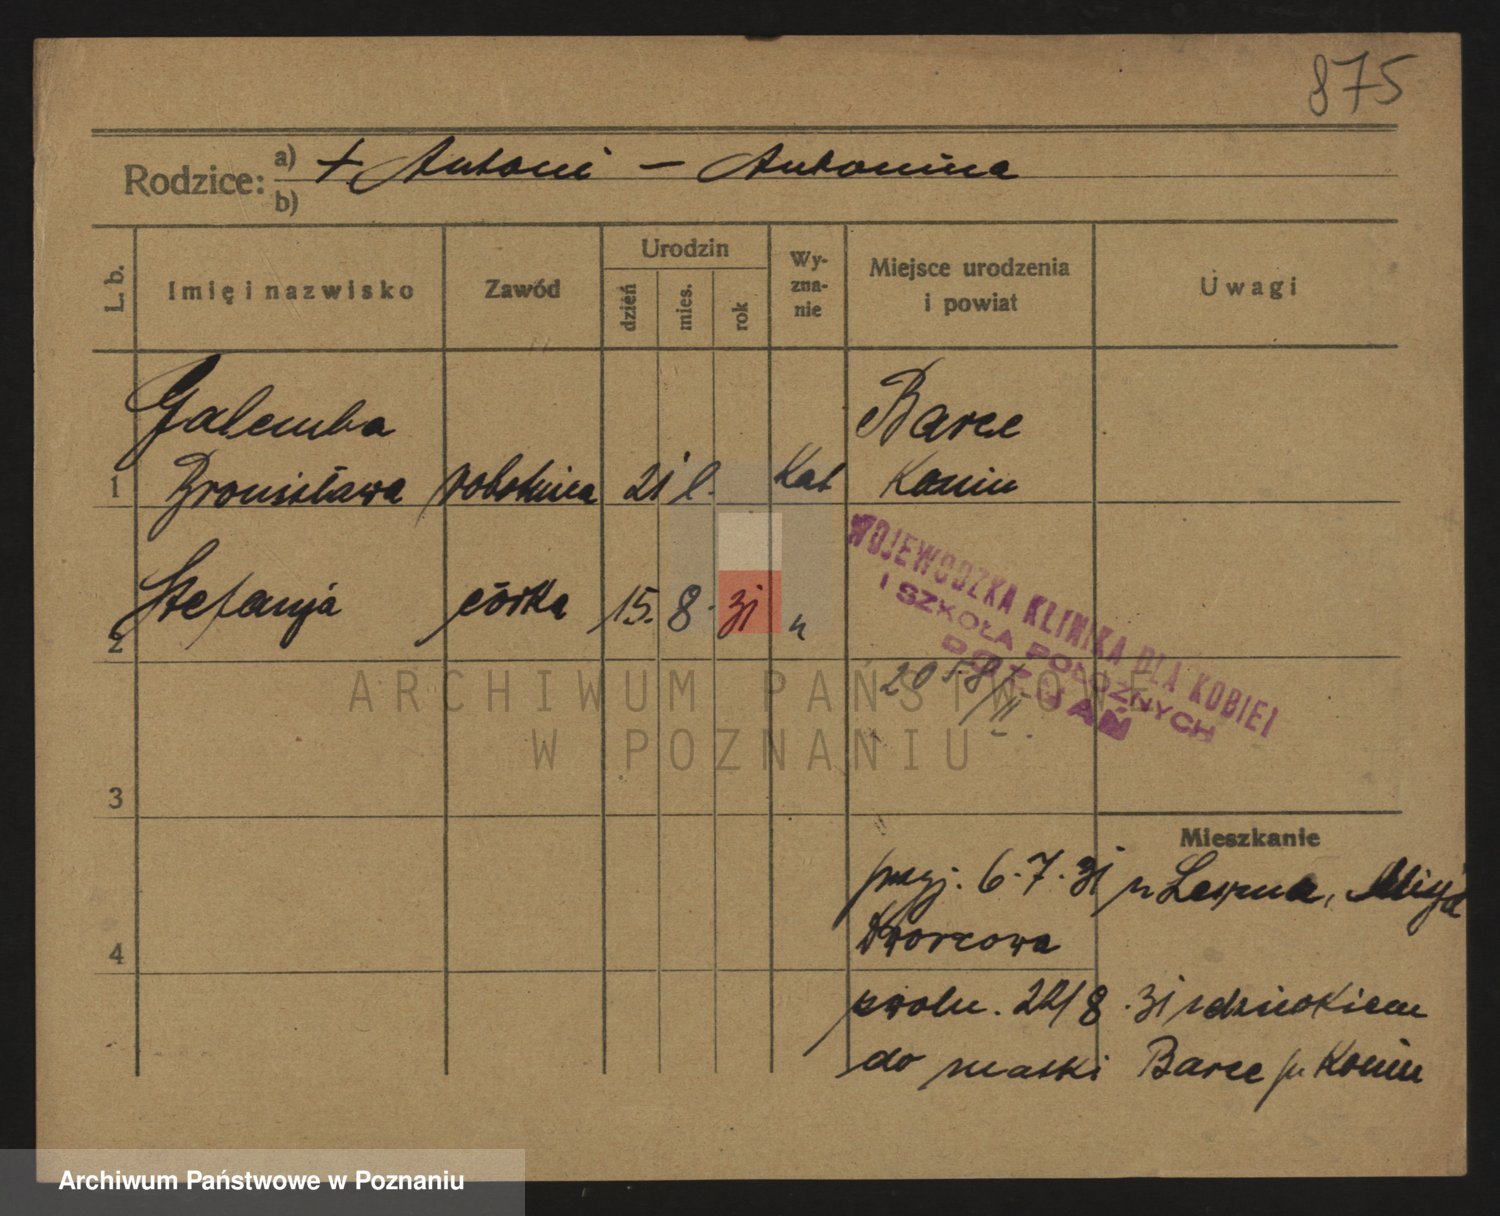 875
Rodzice: a) + Antoni — Antonina
b)
L. b.
Imię i nazwisko
Zawód
Urodzin
dzień
mies.
rok
Wy-
zna-
nie
Miejsce urodzenia
i powiat
Uwagi
Galemba
Barce
1 Bronisława robotnica 21 l. Kat Konin
2 Stefanja córka 15. 8. 31 "
WOJEWÓDZKA KLINIKA DLA KOBIET
I SZKOŁA POŁOŻNYCH
POZNAŃ
ARCHIWUM PAŃSTWOWE
W POZNANIU
3
Mieszkanie
przyj. 6.7.31 Misja
Dworcowa
4
zwoln. 22/8.31 z dzieckiem
do matki Barce p. Konin
Archiwum Państwowe w Poznaniu